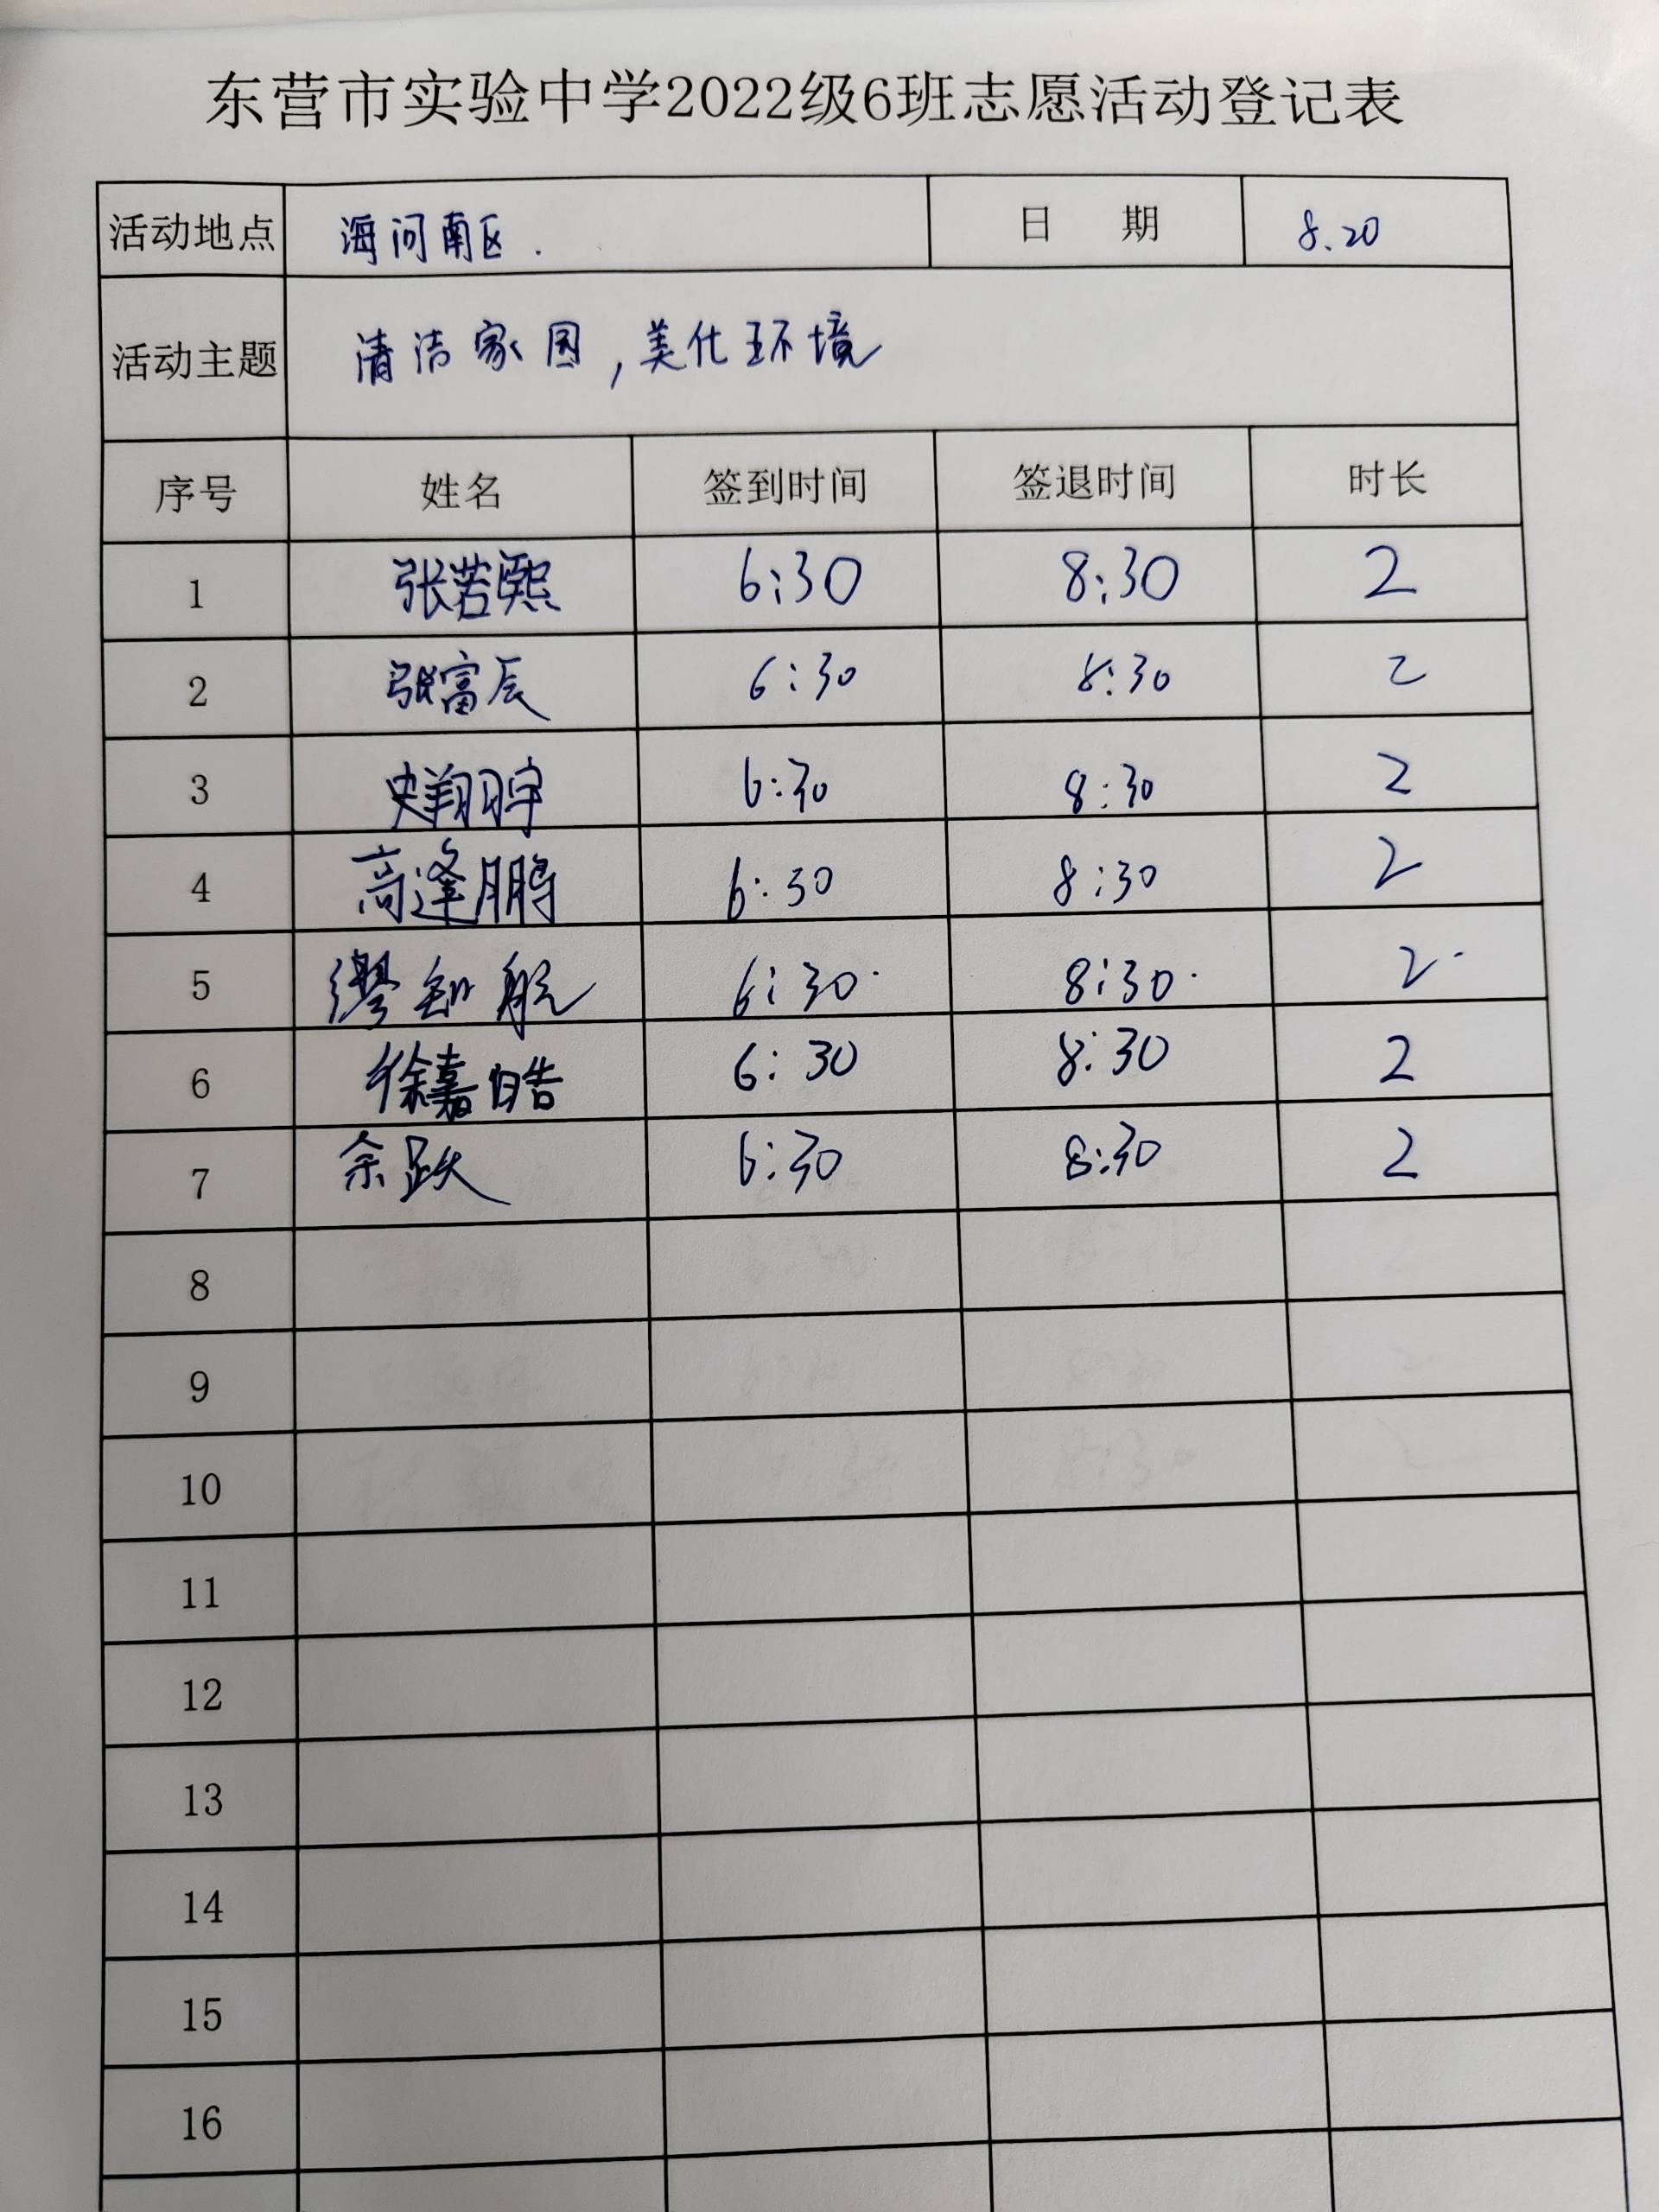 东营市实验中学2022级6班志愿活动登记表
活动地点 海问南区. 日 期 8.20
活动主题 清洁家园,美化环境
序号 姓名 签到时间 签退时间 时长
1 张若熙 6:30 8:30 2
2 张富辰 6:30 8:30 2
3 史翔宇 6:30 8:30 2
4 高逢鹏 6:30 8:30 2
5 缪知航 6:30. 8:30. 2.
6 徐嘉皓 6:30 8:30 2
7 余跃 6:30 8:30 2
8
9
10
11
12
13
14
15
16